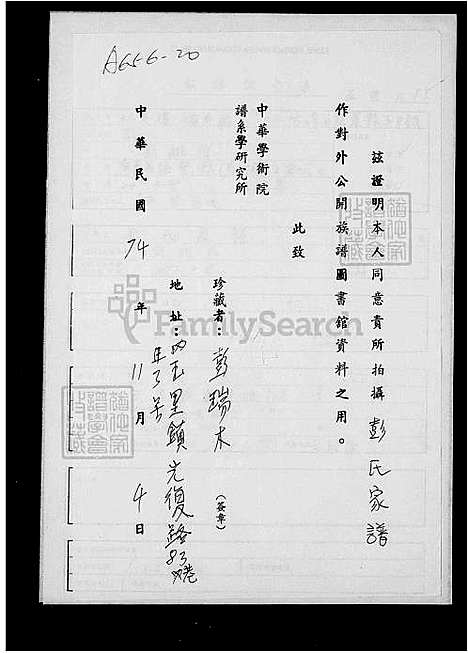 A656-20
茲證明本人同意貴所拍攝彭氏家譜
作對外公開族譜圖書館資料之用。
此致
中華學術院
譜系學研究所
珍藏者：彭瑞木（簽章）
地址：玉里鎮光復路83巷
中華民國74年11月4日
FamilySearch